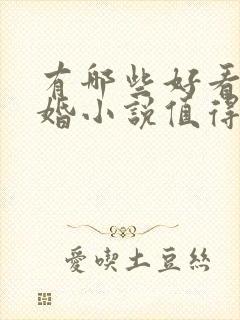 有哪些好看
婚小說值得
愛喫土豆絲